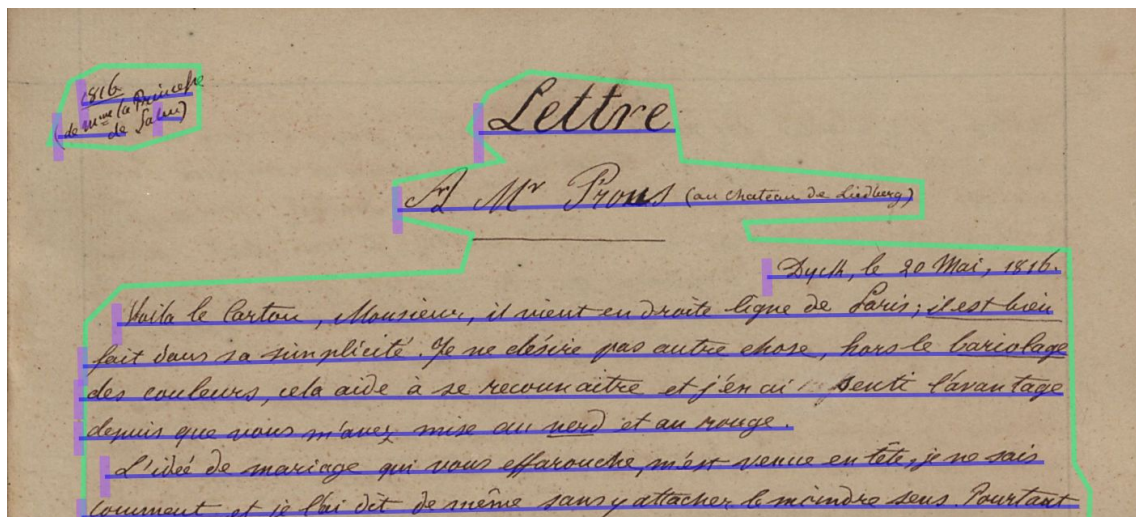 1816.
(de Mme la Princesse
de Salm)
Lettre
A Mr Prous (au chateau de Liedberg)
Dyck, le 20 Mai, 1816.
Voila le Carton, Monsieur, il vient en droite ligne de Paris; il est bien
fait dans sa simplicité. Je ne désire pas autre chose, hors le bariolage
des couleurs, cela aide à se reconnaitre et j'en ai senti l'avantage
depuis que vous m'avez mise au verd et au rouge.
L'idée de mariage qui vous effarouche, m'est venue en tête, je ne sais
comment et je l'ai dit de même sans y attacher le moindre sens. Pourtant